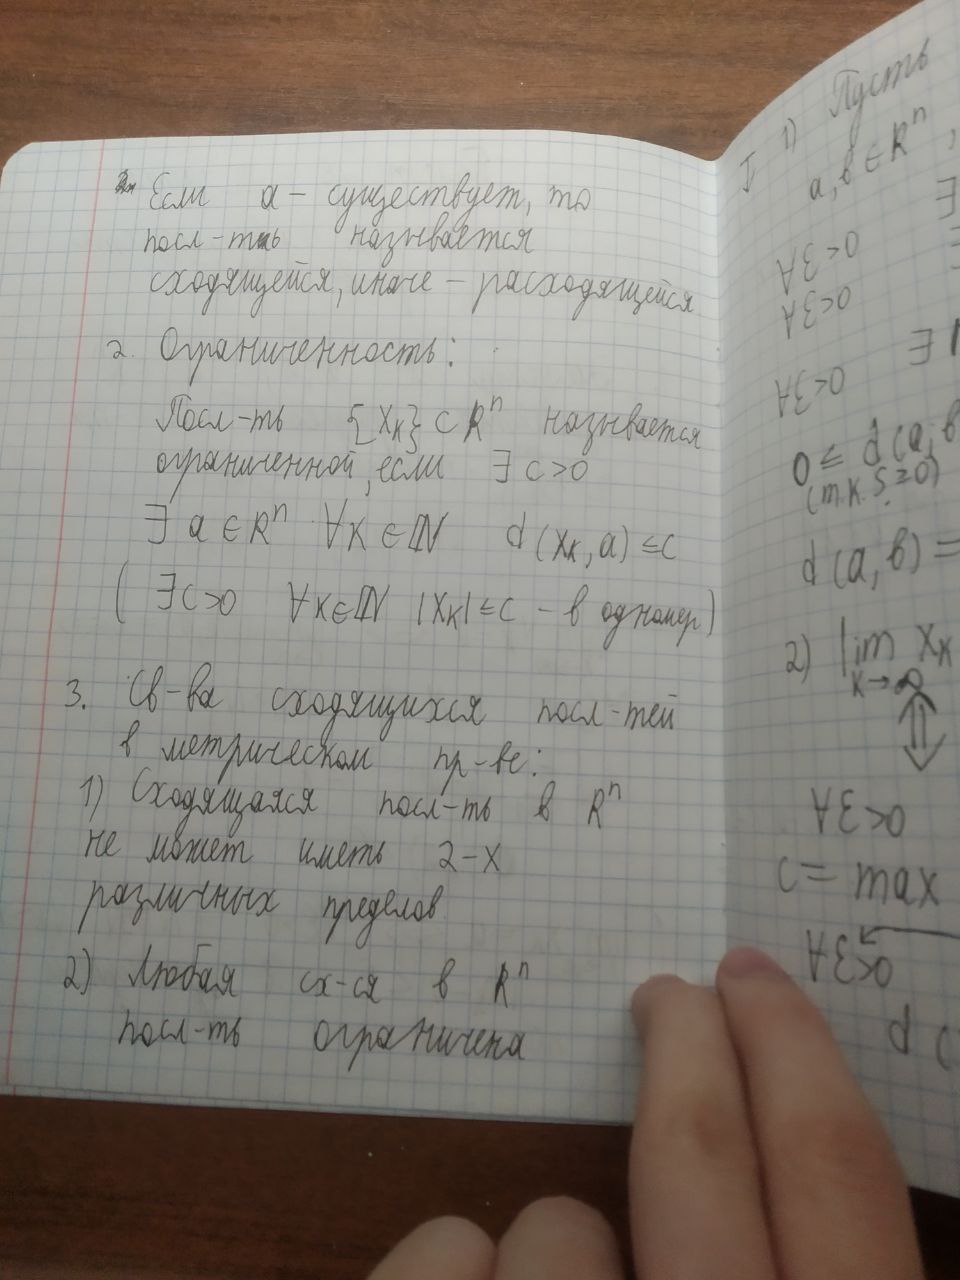 Если a – существует, то
посл-ть называется
сходящейся, иначе – расходящейся
2. Ограниченность:
Посл-ть {xₖ} ⊂ Rⁿ называется
ограниченной, если ∃ c>0
∃ a ∈ Rⁿ ∀k ∈ ℕ d(xₖ, a) ≤ c
( ∃c>0 ∀k∈ℕ |xₖ| ≤ c – в одномер)
3. Св-ва сходящихся посл-тей
в метрическом пр-ве:
1) Сходящаяся посл-ть в Rⁿ
не может иметь 2-х
различных пределов
2) Любая сх-ся в Rⁿ
посл-ть ограничена
I 1) Пусть
a, b ∈ Rⁿ,
∃
∀ε>0
∀ε>0
∃ N
∀ε>0
0 ≤ d(a, b
d(a, b) =
2) lim xₖ
k→∞
⇕
∀ε>0
c = max
∀ε>0
d(